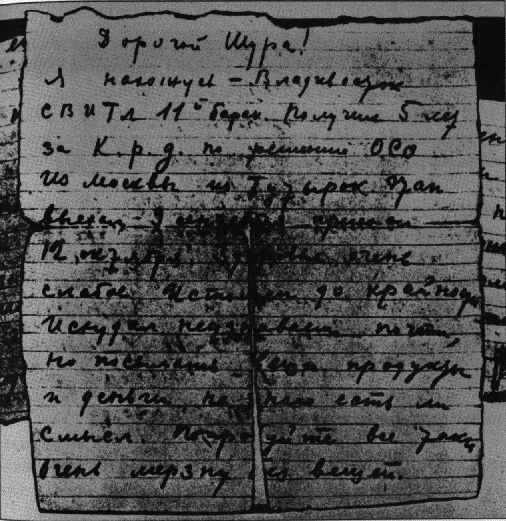 Дорогой Шура!
Я нахожусь – Владивосток
СВИТЛ 11й барак. Получил 5 лет
за К.р.д. по решению ОСО
Из Москвы из Бутырок этап
выехал 9 приехали
12 октября. Здоровье очень
слабое. Истощен до крайности
Исхудал неузнаваем почти,
но посылать вещи продукты
и деньги не знаю есть ли
смысл. Попробуйте все таки,
Очень мерзну без вещей.